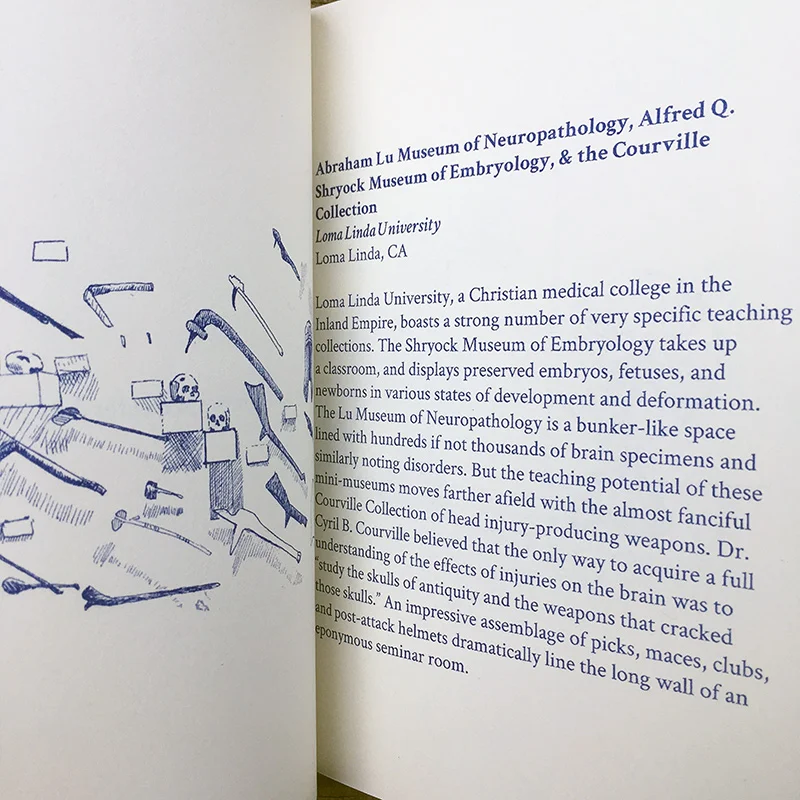 Abraham Lu Museum of Neuropathology, Alfred Q.
Shryock Museum of Embryology, & the Courville
Collection
Loma Linda University
Loma Linda, CA
Loma Linda University, a Christian medical college in the
Inland Empire, boasts a strong number of very specific teaching
collections. The Shryock Museum of Embryology takes up
a classroom, and displays preserved embryos, fetuses, and
newborns in various states of development and deformation.
The Lu Museum of Neuropathology is a bunker-like space
lined with hundreds if not thousands of brain specimens and
similarly noting disorders. But the teaching potential of these
mini-museums moves farther afield with the almost fanciful
Courville Collection of head injury-producing weapons. Dr.
Cyril B. Courville believed that the only way to acquire a full
understanding of the effects of injuries on the brain was to
“study the skulls of antiquity and the weapons that cracked
those skulls.” An impressive assemblage of picks, maces, clubs,
and post-attack helmets dramatically line the long wall of an
eponymous seminar room.